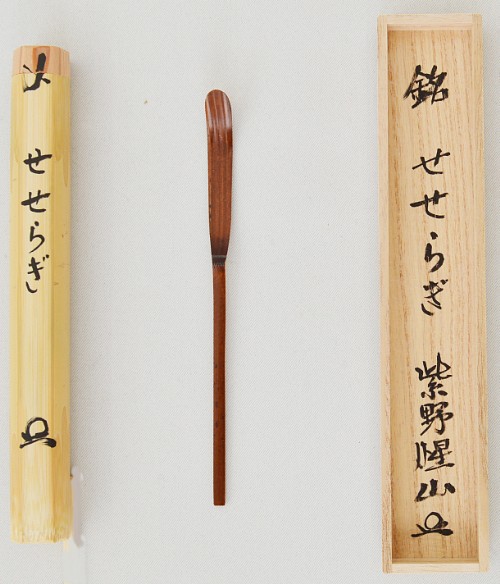 〆 せせらぎ
銘 せせらぎ 紫野 山